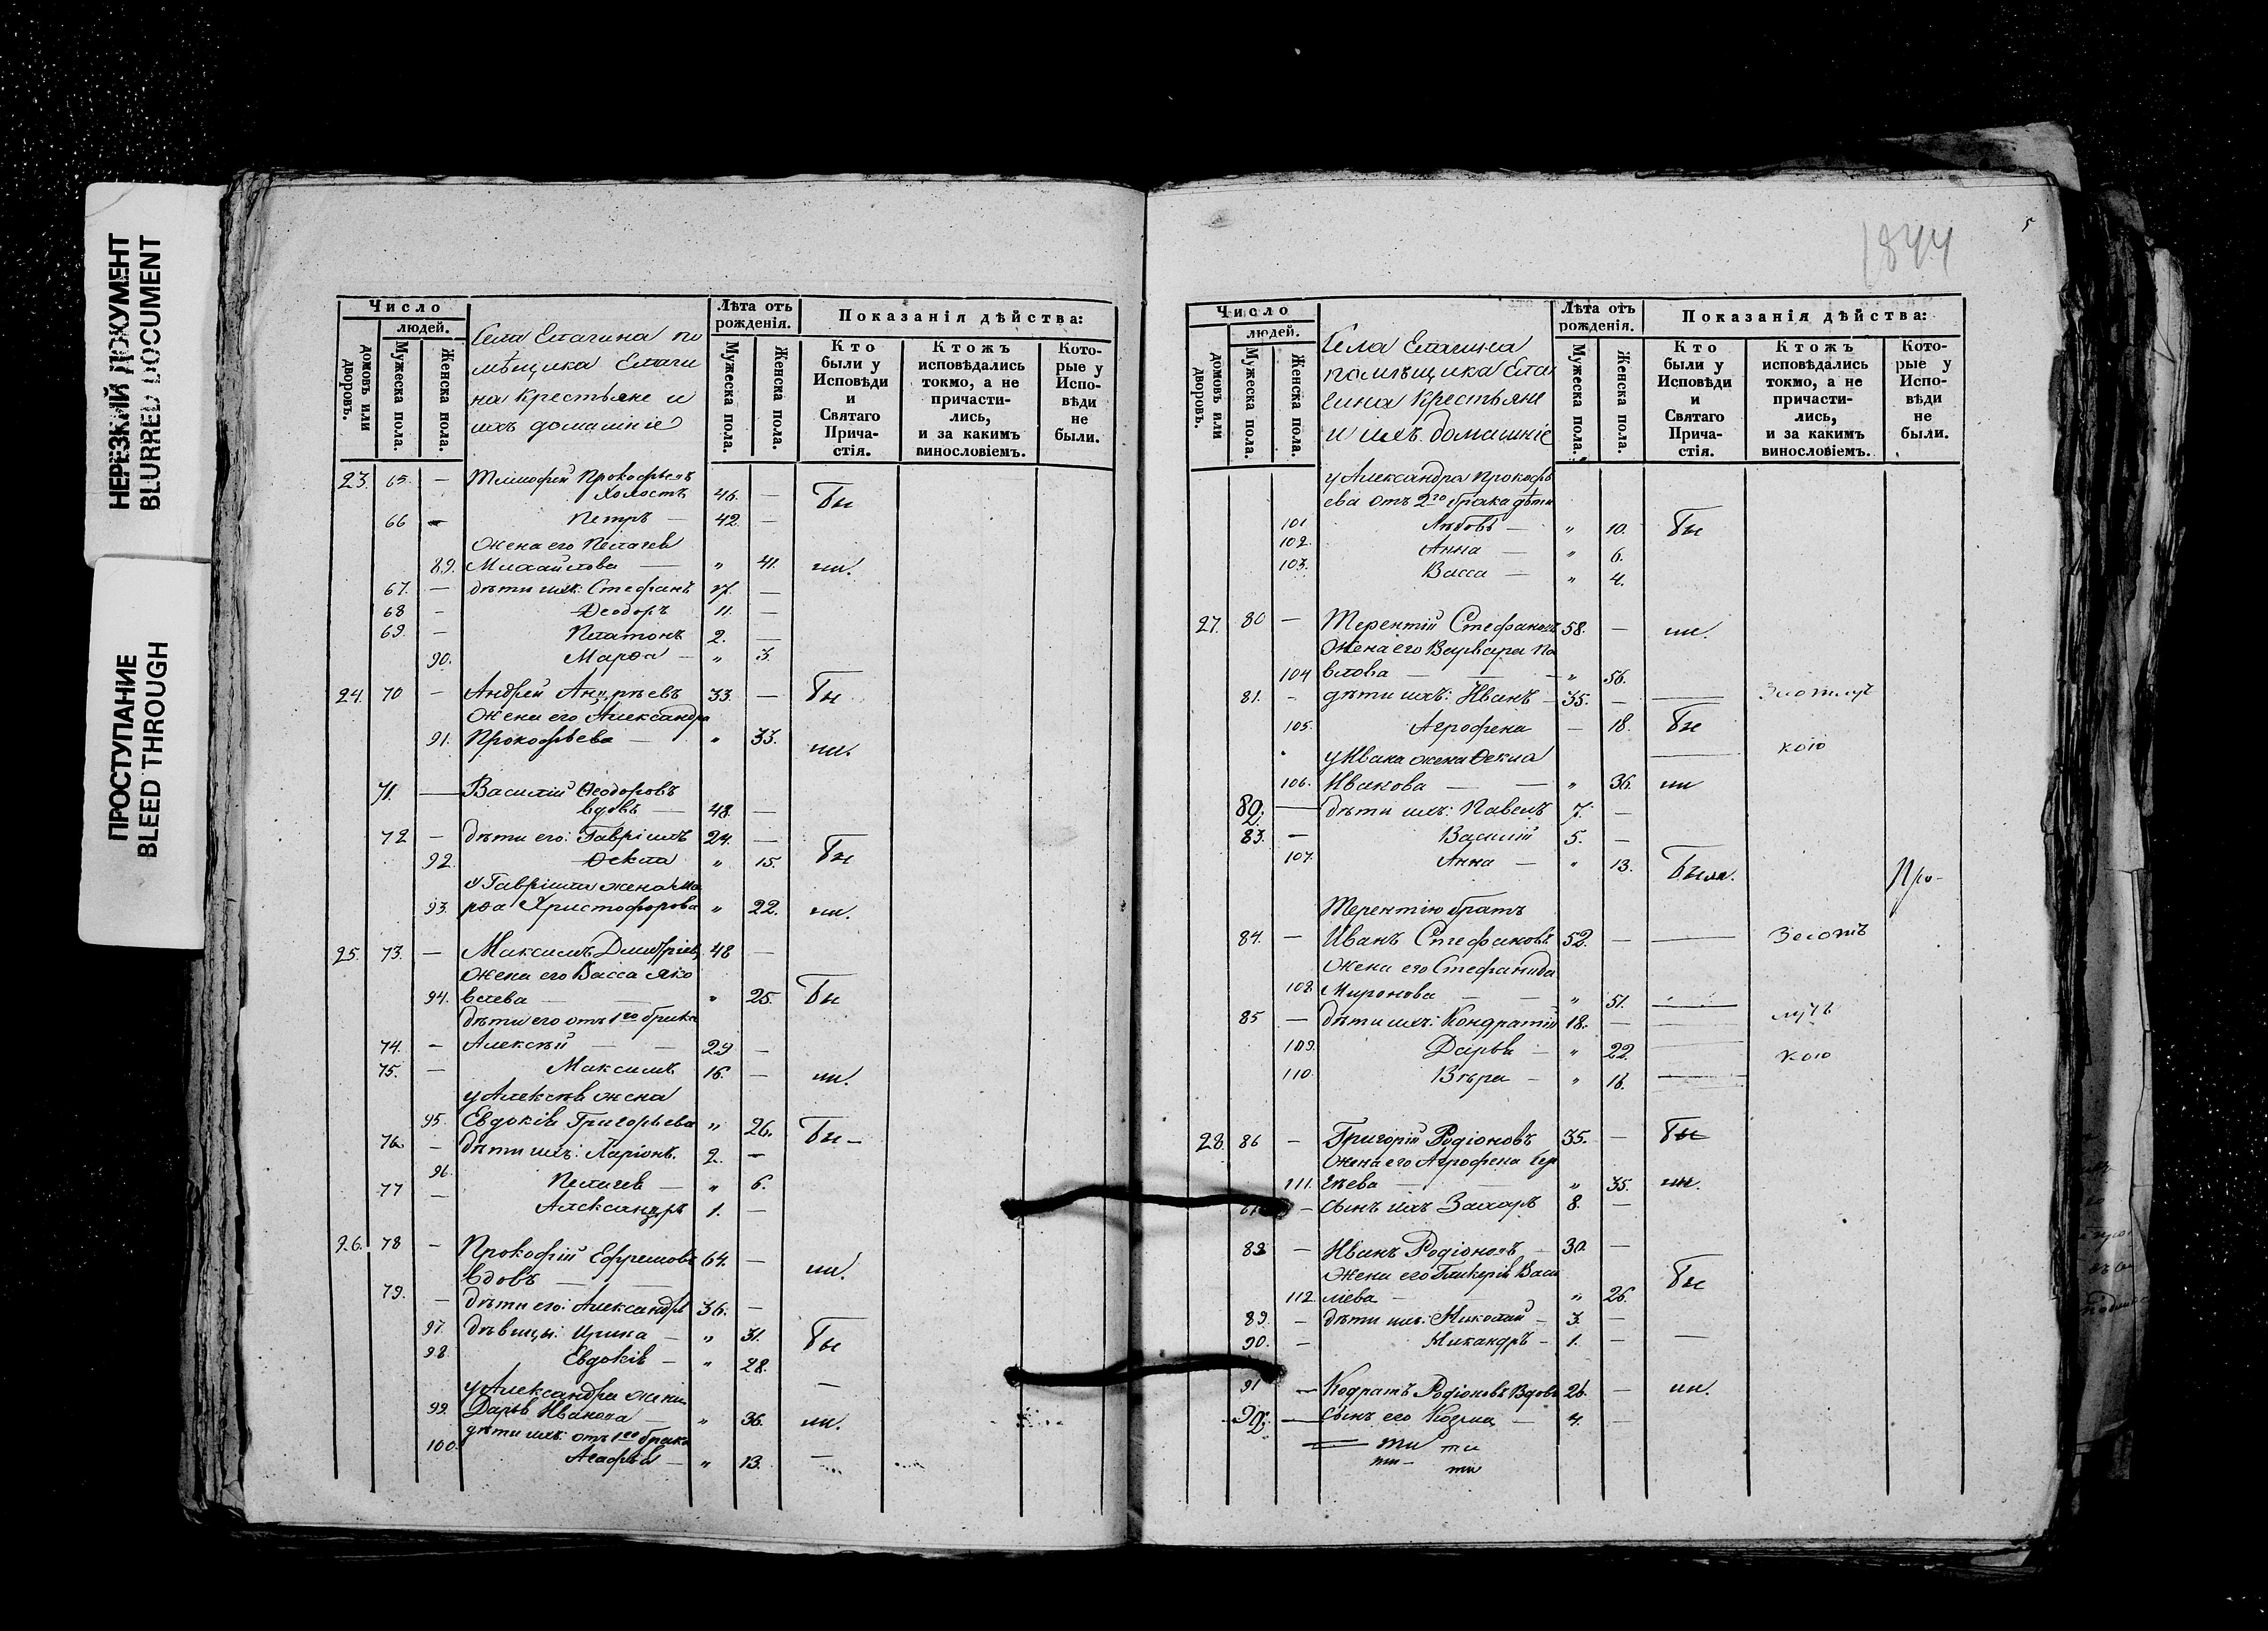 НЕРЕЗКИЙ ДОКУМЕНТ
BLURRED DOCUMENT
ПРОСТУПАНИЕ
BLEED THROUGH
Число
людей.
домовъ или дворовъ.
Мужеска пола.
Женска пола.
Села Елагина по
мѣщика Елаги
на крестьяне и
ихъ домашніе
Лѣта отъ рожденія.
Мужеска пола.
Женска пола.
Показанія дѣйства:
Кто были у Исповѣди и Святаго Прича-стія.
Ктожъ исповѣдались токмо, а не причасти-лись, и за какимъ винословіемъ.
Кото-рые у Испо-вѣди не были.
23. 65. — Тимофей Прокофьевъ
Холостъ 46. — Бы
66 — Петръ — 42. —
Жена его Пелагея
89. Михайлова — „ 41. ли.
67. — дѣти ихъ: Стефанъ —
68 — Ѳеодоръ 11. —
69. — Платонъ 2. —
90. Марѳа — „ 3.
24. 70 — Андрей Андреевъ 33. — Бы
Жена его Александра
91. Прокофьева — „ 33. ли.
71. — Василій Ѳеодоровъ
вдовъ — 48. —
72 — дѣти его: Гавріилъ 24. —
92. Ѳекла „ 15. Бы
у Гавріила жена Ма
93. рѳа Христофорова „ 22. ли.
25. 73. — Максимъ Дмитріевъ 48 —
Жена его Васса Яко
94. влева — „ 25. Бы
дѣти его отъ 1го брака
74. — Алексѣй — 29 —
75. — Максимъ 16. — ли.
у Алексѣя жена
95. Евдокія Григорьева „ 26. Бы —
76 — дѣти ихъ: Ларіонъ. 2. —
96. Пелагея — „ 6.
77 — Александръ 1. —
26. 78 — Прокофій Ефремовъ 64. —
Вдовъ — ли.
79. — дѣти его: Александръ 36. —
97. дѣвицы: Ирина — „ 31. Бы
98. Евдокія — „ 28.
у Александра жена —
99. Дарья Иванова — „ 36. ли.
дѣти ихъ: отъ 1го брака
100. Агафья — „ 13. —
1844
5
Число
людей.
домовъ или дворовъ.
Мужеска пола.
Женска пола.
Села Елагина
помѣщика Ела
гина крестьяне
и ихъ домашніе
Лѣта отъ рожденія.
Мужеска пола.
Женска пола.
Показанія дѣйства:
Кто были у Исповѣди и Святаго Прича-стія.
Ктожъ исповѣдались токмо, а не причасти-лись, и за какимъ винословіемъ.
Кото-рые у Испо-вѣди не были.
у Александра Прокофь
ева отъ 2го брака дѣти
101 Любовь — „ 10. Бы
102. Анна — „ 6.
103. Васса — „ 4.
27. 80 — Терентій Стефановъ 58. — ли.
Жена его Варвара Па
104 влова — „ 56.
81. — дѣти ихъ: Иванъ — 35. — —
105. Агрофена — 18. Бы
у Ивана жена Ѳекла — кою
106. Иванова — „ 36. ли
82. — дѣти ихъ: Павелъ 7. —
83. — Василій 5. —
107. Анна — „ 13. Были. Про-
Терентію братъ
84. — Иванъ Стефановъ 52. — —
Жена его Стефанида
108. Миронова — „ 51. —
85 — дѣти ихъ: Кондратій 18. — —
109. Дарья — „ 22. — кою
110. Вѣра — „ 16. —
28. 86 — Григорій Родіоновъ 35. — Бы
Жена его Агрофена Сер
111. гѣева — „ 35. ли.
87 — сынъ ихъ Захаръ 8. —
88 — Иванъ Родіоновъ — 30. —
Жена его Гликерія Васи Бы
112. лiева — „ 26.
89. — дѣти ихъ: Николай — 3. —
90. — Никандръ — 1. — —
91 — Кодратъ Родіоновъ Вдовъ 26. — ли.
92. — сынъ его Козма — 4. —